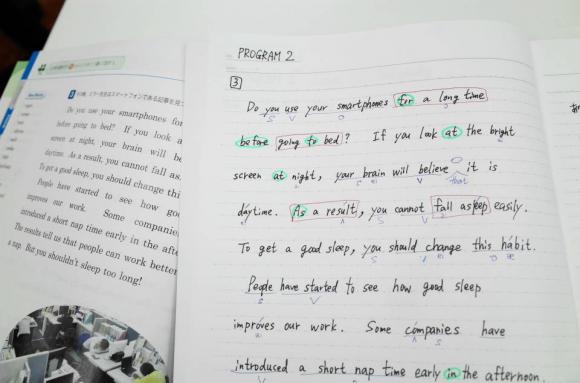 Do you use your smartphones for
before going to bed? If you look a
screen at night, your brain will be
daytime. As a result, you cannot fall as
To get a good sleep, you should change thi
People have started to see how goo
improves our work. Some companie
introduced a short nap time early in the afte
The results tell us that people can work better
a nap. But you shouldn't sleep too long!
PROGRAM 2
3
Do you use your smartphones for a long time
S V O
before going to bed? If you look at the bright
screen at night, your brain will believe it is
S V that
daytime. As a result, you cannot fall asleep easily.
S V
To get a good sleep, you should change this habit.
S V O
People have started to see how good sleep
S V
improves our work. Some companies have
S
introduced a short nap time early in the afternoon.
V